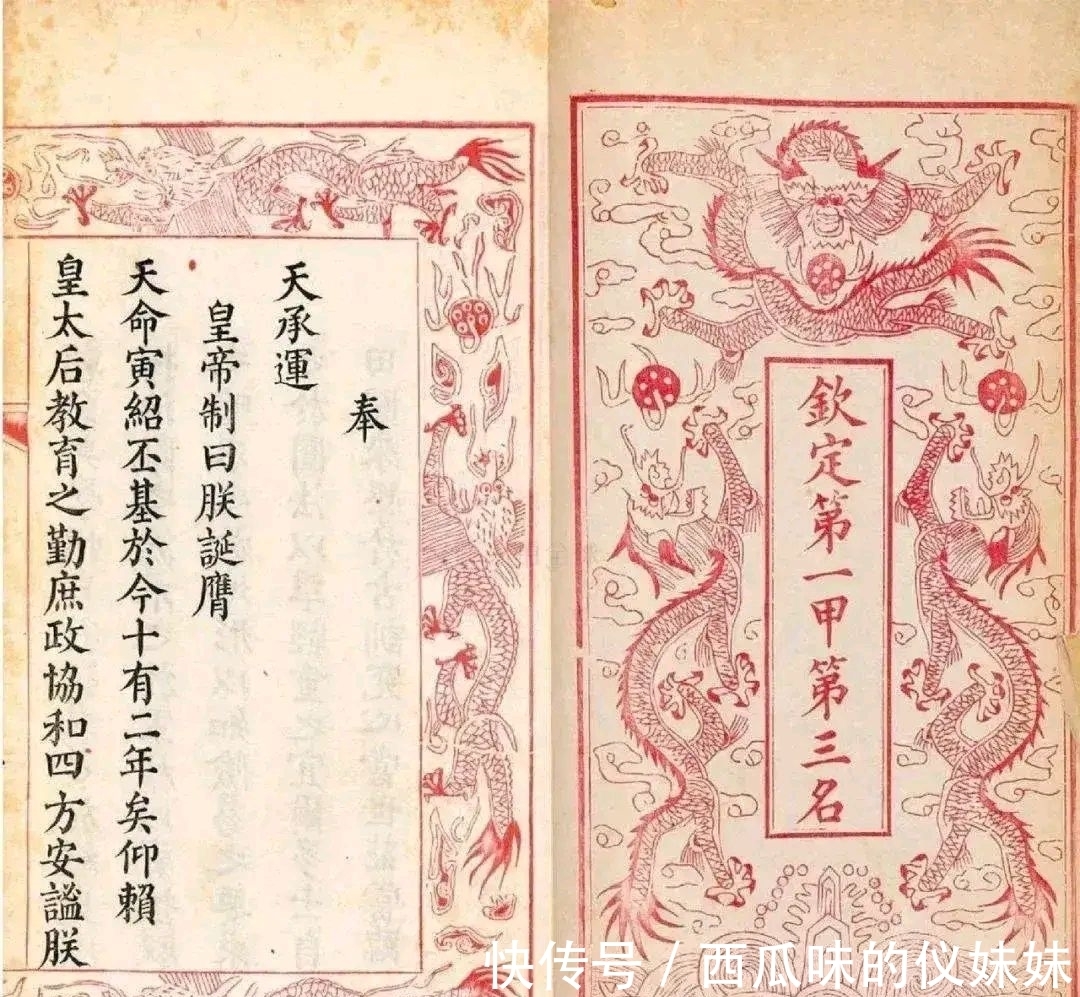 欽定第一甲第三名
奉
天承運
皇帝制曰朕誕膺
天命寅紹丕基於今十有二年矣仰賴
皇太后教育之勤庶政協和四方安謐朕
快传号 / 西瓜味的仪妹妹